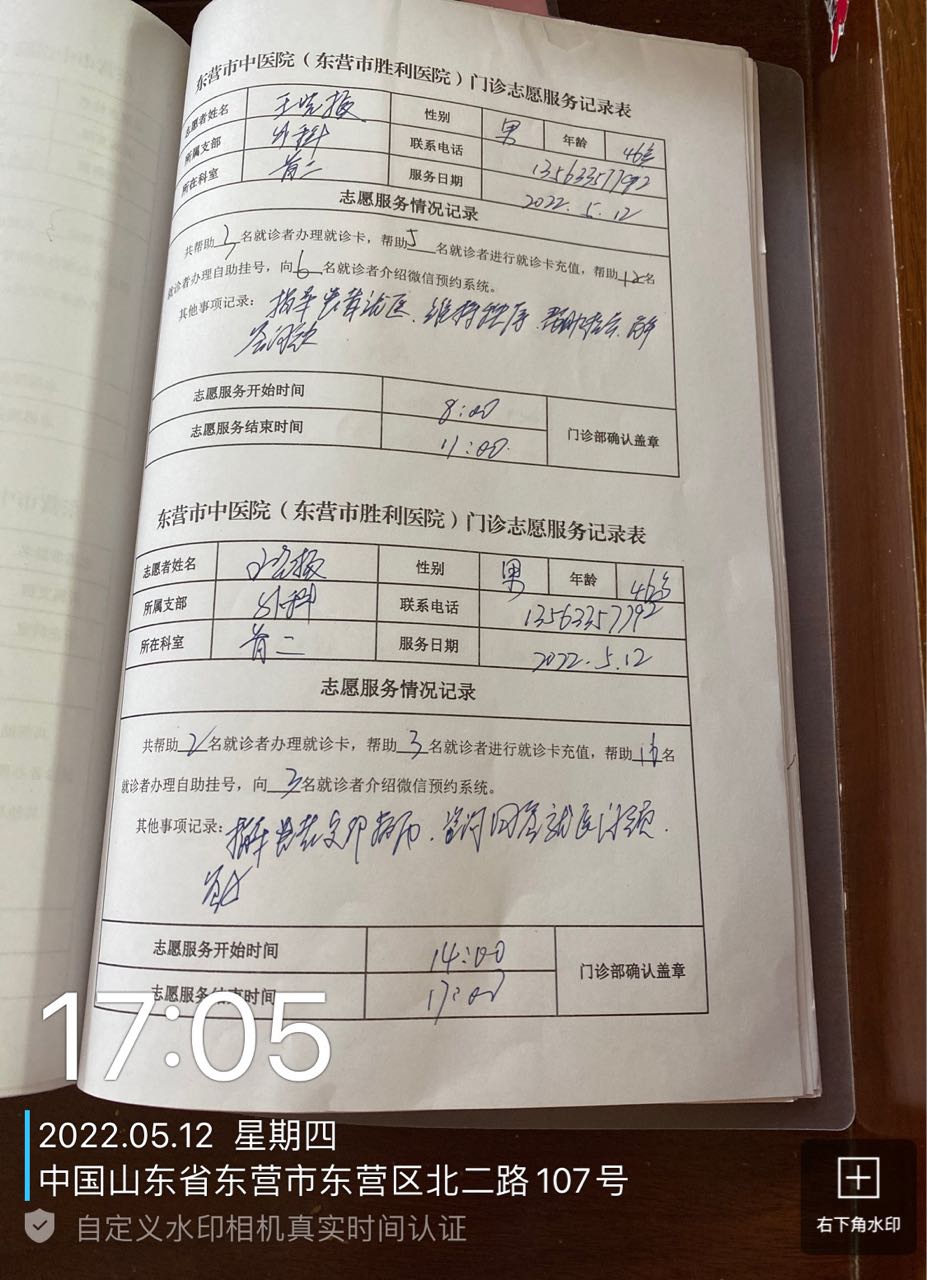 东营市中医院（东营市胜利医院）门诊志愿服务记录表
志愿者姓名 性别 男 年龄 46岁
所属支部 外科 联系电话 13563357792
所在科室 骨二 服务日期 2022.5.12
志愿服务情况记录
共帮助 名就诊者办理就诊卡，帮助5名就诊者进行就诊卡充值，帮助12名
就诊者办理自助挂号，向6名就诊者介绍微信预约系统。
其他事项记录：指导患者就医、维持秩序、
志愿服务开始时间 8:00
志愿服务结束时间 11:00. 门诊部确认盖章
东营市中医院（东营市胜利医院）门诊志愿服务记录表
志愿者姓名 性别 男 年龄 46岁
所属支部 外科 联系电话 13563357792
所在科室 骨二 服务日期 2022.5.12
志愿服务情况记录
共帮助2名就诊者办理就诊卡，帮助3名就诊者进行就诊卡充值，帮助16名
就诊者办理自助挂号，向3名就诊者介绍微信预约系统。
其他事项记录：
志愿服务开始时间 14:00
志愿服务结束时间 17:00 门诊部确认盖章
17:05
2022.05.12 星期四
中国山东省东营市东营区北二路107号
自定义水印相机真实时间认证
右下角水印